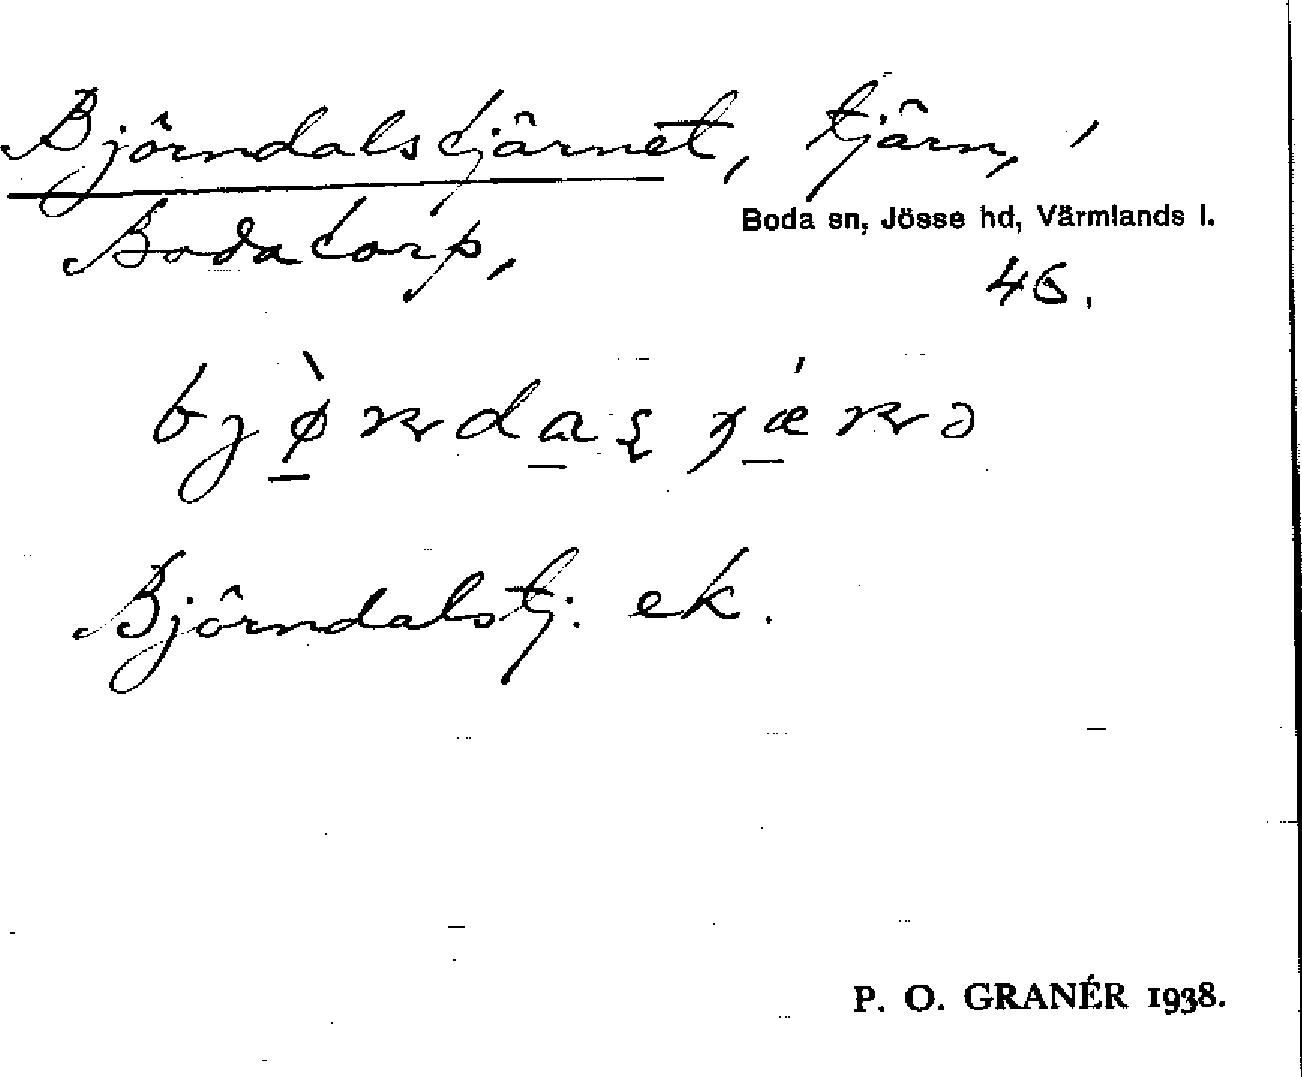 Björndalstjärnet, tjärn, i
Boda sn, Jösse hd, Värmlands l.
Bodatorp,
46.
Björndalstj. ek.
P. O. GRANÉR 1938.